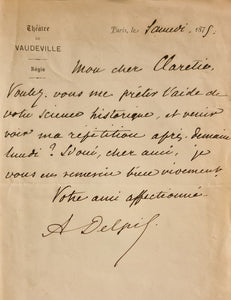 Théâtre
DU
VAUDEVILLE
Régie
Paris, le Samedi 1875.
Mon cher Claretie,
Voulez-vous me prêter l'aide de
votre science historique, et venir
voir ma répétition après-demain
lundi ? Si oui, cher ami, je
vous en remercie bien vivement.
Votre ami affectionné
A Delpit